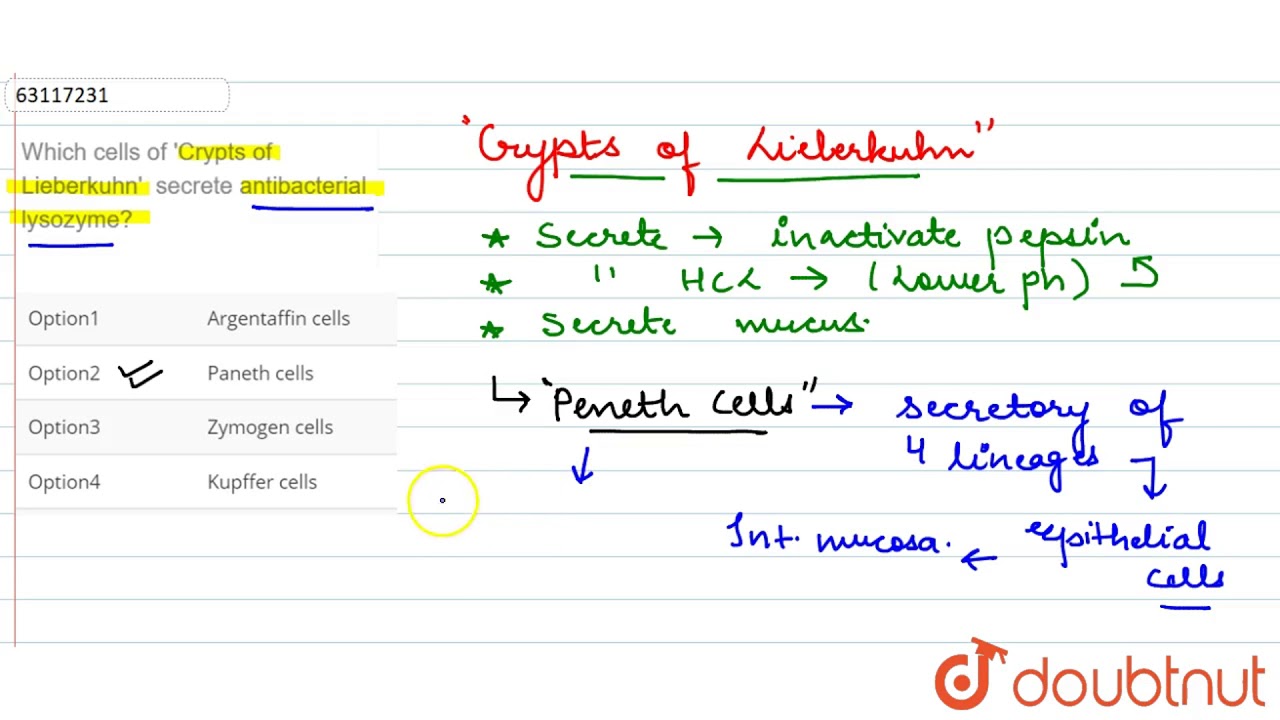 63117231
Which cells of 'Crypts of
Lieberkuhn' secrete antibacterial
lysozyme?
Option1 Argentaffin cells
Option2 Paneth cells
Option3 Zymogen cells
Option4 Kupffer cells
"Crypts of Lieberkuhn"
* Secrete → inactivate pepsin
* " HCL → (Lower ph)
* Secrete mucus.
↳ "Peneth cells" → secretory of
4 lineages
↓
Int. mucosa. ← epithelial
cells
doubtnut